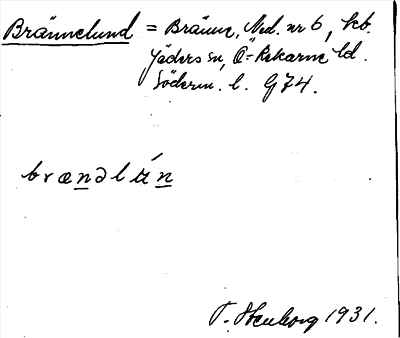 Brännelund = Bränne, Ned. nr 6, hb.
Jäders sn, Ö-Rekarne hd.
Söderm. l. G74.
brænəlún
T. Stenborg 1931.